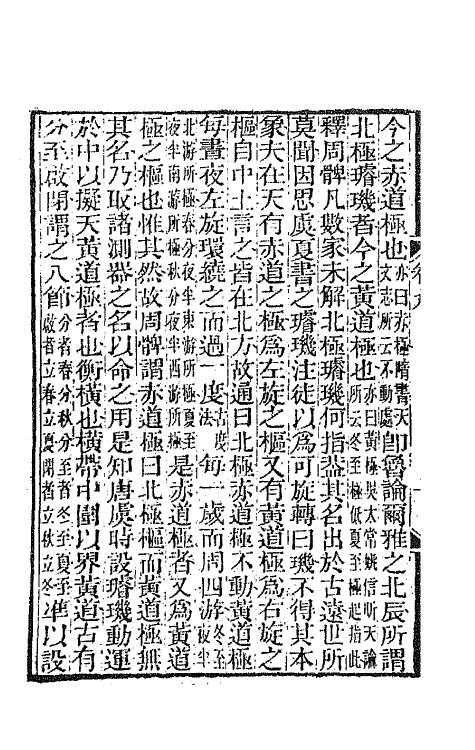 今之赤道極也亦曰赤極隋書天文志所云不動處即魯論爾雅之北辰所謂
北極璿璣者今之黃道極也亦曰黃極吳太常姚信昕天論所云冬至極低夏至極起指此
釋周髀凡數家未解北極璿璣何指蓋其名出於古遠世所
莫聞因思虞夏書之璿璣注徒以爲可旋轉曰璣不得其本
象夫在天有赤道之極爲左旋之樞又有黃道極爲右旋之
樞自中土言之皆在北方故通曰北極赤道極不動黃道極
每晝夜左旋環繞之而過一度古度法每一歲而周四游冬至夜半
北游所極春分夜半東游所極夏至夜半南游所極秋分夜半西游所極是赤道極者又爲黃道
極之樞也惟其然故周髀謂赤道極曰北極樞而黃道極無
其名乃取諸測器之名以命之用是知唐虞時設璿璣動運
於中以擬天黃道極者也衡橫也橫帶中圍以界黃道古有
分至啟閉謂之八節分者春分秋分至者冬至夏至啟者立春立夏閉者立秋立冬準以設